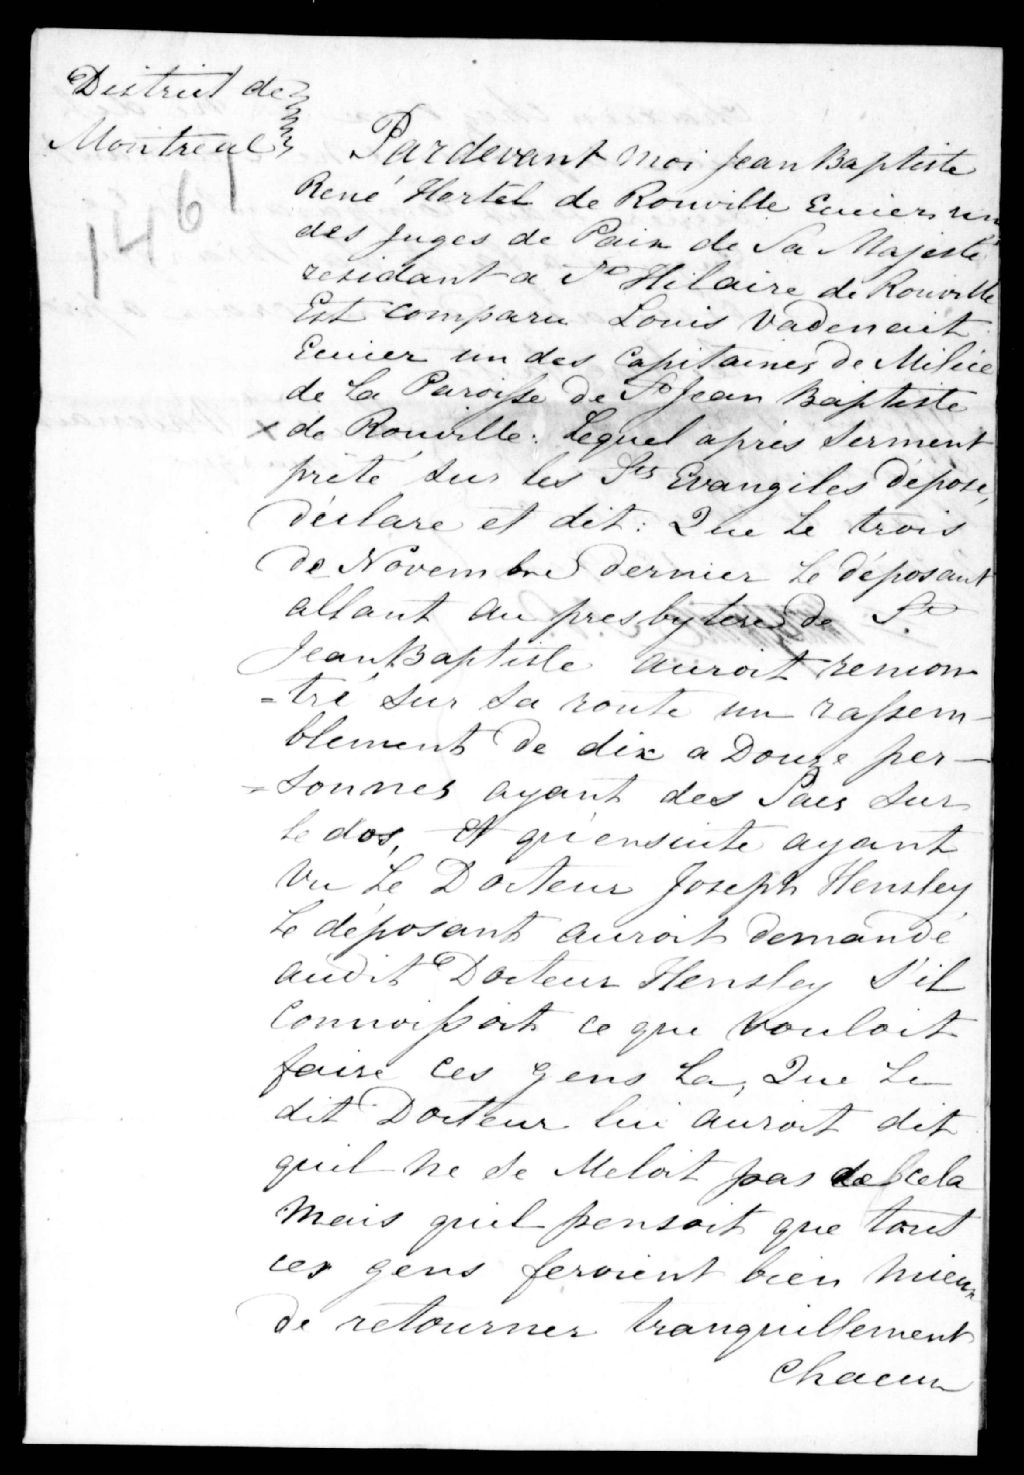 District de
Montreal
1461
Pardevant moi Jean Baptiste
René Hertel de Rouville Ecuier, un
des Juges de Paix de Sa Majesté
residant a St Hilaire de Rouville
Est comparu Louis Vadenait
Ecuier un des Capitaines de Milice
de La Paroisse de St Jean Baptiste
x de Rouville: Lequel après serment
prêté sur les Sts Evangiles dépose,
déclare et dit: Que Le trois
de Novembre dernier Le déposant
allant au presbytere de St
Jean Baptiste auroit rencon
-tré sur sa route un rassem-
blement de dix a Douze per-
-sonnes ayant des Sacs sur
le dos, et qu'ensuite ayant
vu Le Docteur Joseph Hensley
Le déposant auroit demandé
audit Docteur Hensley s'il
connoissoit ce que vouloit
faire ces gens La, Que Le
dit Docteur lui auroit dit
quil ne se Meloit pas de cela
Mais quil pensoit que tout
ces gens feroient bien mieux
de retourner tranquillement
Chacun